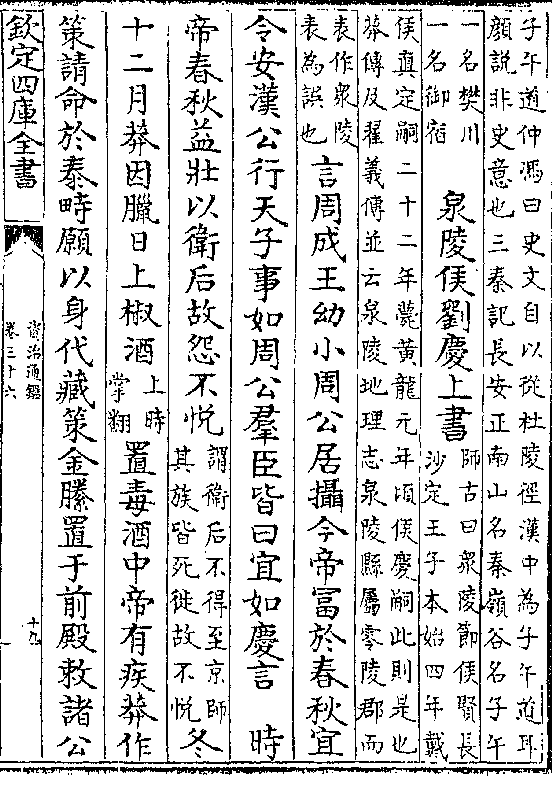 子午道仲馮曰史文自以從杜陵徑漢中為子午道耳
顔説非史意也三秦記長安正南山名秦嶺谷名子午
一名樊川
一名御宿
泉陵侯劉慶上書
師古曰衆陵節侯賢長
沙定王子本始四年戴
侯真定嗣二十二年薨黄龍元年頃侯慶嗣此則是也
莽傳及翟義傳並云泉陵地理志泉陵縣屬零陵郡而
表作衆陵
表為誤也
言周成王幼小周公居攝今帝富於春秋宜
令安漢公行天子事如周公羣臣皆曰宜如慶言　時
帝春秋益壯以衛后故怨不悦
謂衛后不得至京師
其族皆死徙故不悦
冬
十二月莽因臘日上椒酒
上時
掌翻
置毒酒中帝有疾莽作
策請命於泰畤願以身代藏策金縢置于前殿敕諸公
欽定四庫全書
資治通鑑
卷三十六
十九